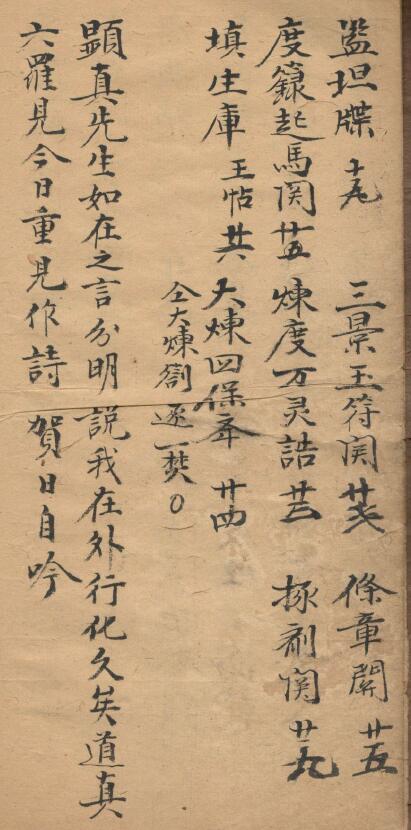 監坦牒 十九 三景玉符関 廿六 條章關 廿五
度籙起馬関 廿五 煉度万灵誥 廿三 掾剤関 廿九
填生庫 王帖 廿六 大煉四保奉 廿四
仝大煉劄逐一焚〇
顕真先生如在之言分明説我在外行化久矣道真
六羅見今日重見作詩 賀日自吟